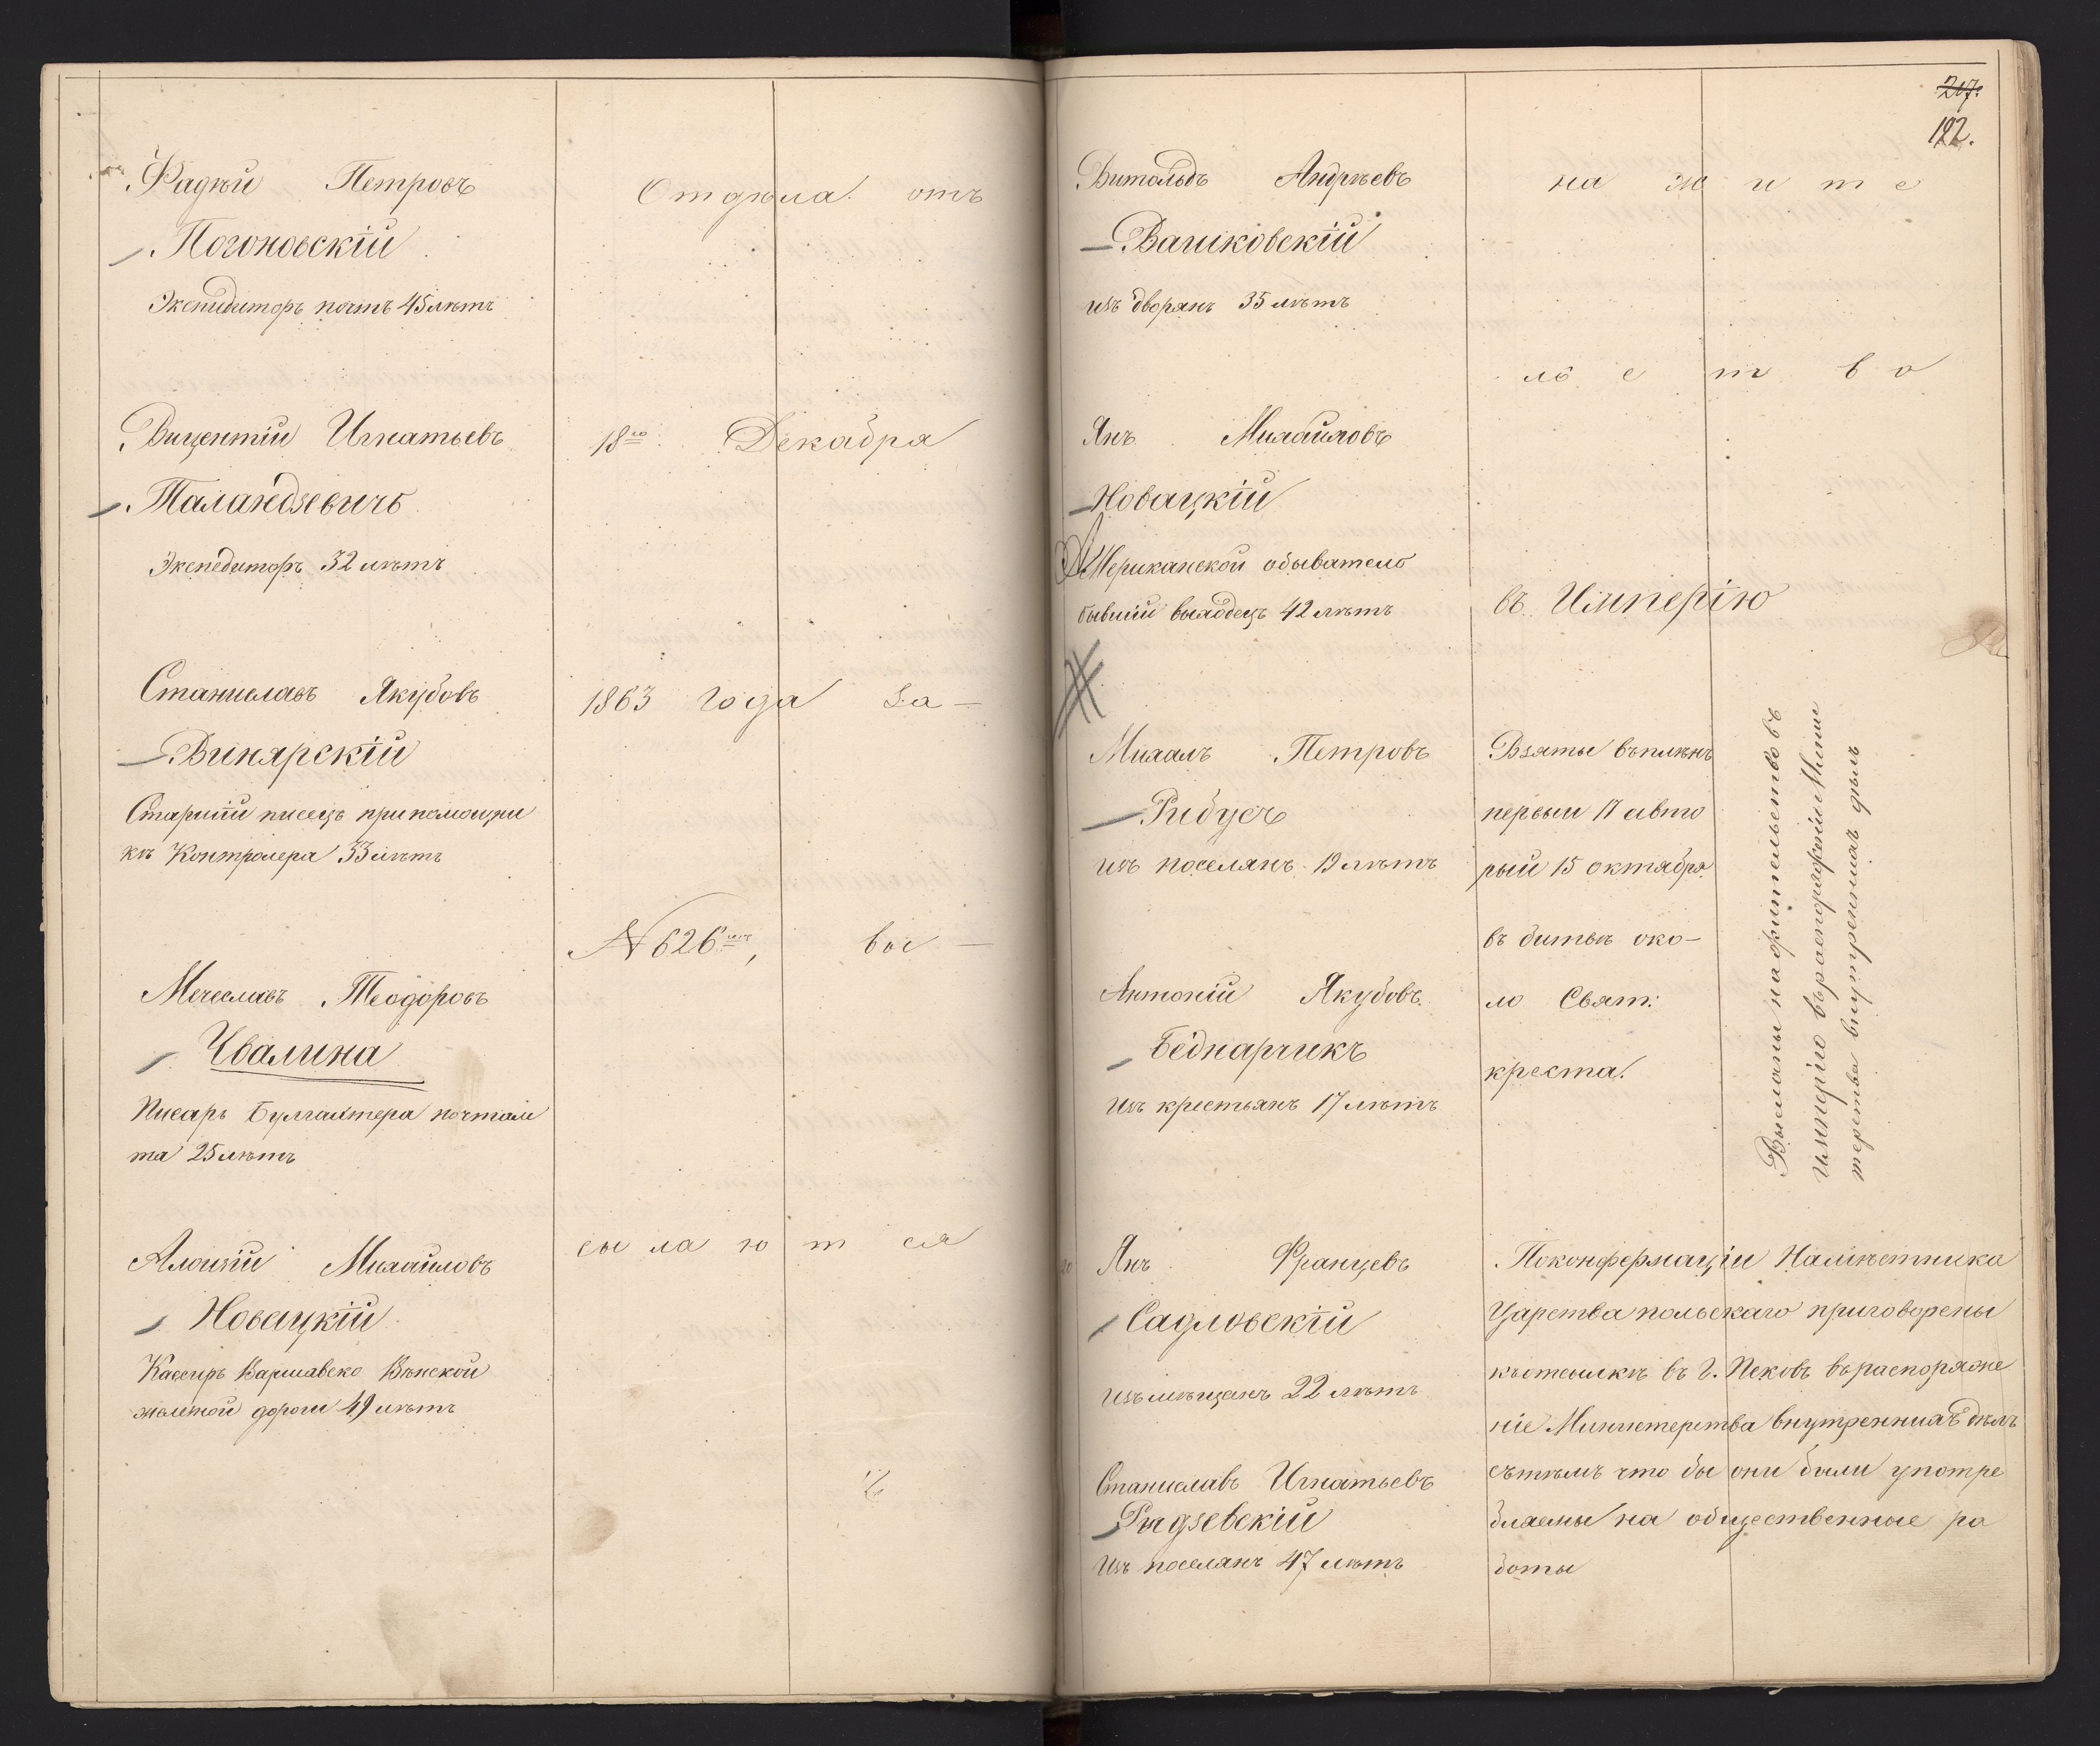 Фадѣй Петровъ
Погоновскій
Экспедиторъ почтъ 45 лѣтъ
Отдѣла отъ
Вицентій Игнатьевъ
Таландзевичъ
Экспедиторъ 32 лѣтъ
18го Декабра
Станиславъ Якубовъ
Винярскій
Старшій писецъ при помощни
кѣ Контролера 33 лѣтъ
1863 года за-
№ 626мъ, вы-
Мечеславъ Теодоровъ
Чвалина
Писарь Бухгалтера почтам
та 25 лѣтъ
Алоизій Михайловъ
Новацкій
Кассиръ Варшавско Вѣнской
желѣзной дороги 49 лѣтъ
сылаются
217.
122.
Витольдъ Андреевъ
Вашковскій
изъ дворянъ 35 лѣтъ
на жите
льство
Янъ Михайловъ
Новацкій
Американской обыватель
бывшій выходецъ 42 лѣтъ
въ Имперію
Михалъ Петровъ
Рибусъ
изъ поселянъ 19 лѣтъ
Взяты въ плѣнъ
первый 17 а вто
рый 15 октября
въ битвѣ око-
ло Свят:
креста.
Антоній Якубовъ
Беднарчикъ
изъ крестьянъ 17 лѣтъ
Высланы на жительство въ
Имперію въ распоряженіи Мини
стерства внутреннихъ дѣлъ
Янъ Францевъ
Садловскій
изъ мѣщанъ 22 лѣтъ
Станиславъ Игнатьевъ
изъ поселянъ 47 лѣтъ
По конфермаціи Намѣстника
Царства польскаго приговорены
къ отсылкѣ въ г. Псковъ въ распоряже
ніе Министерства внутреннихъ дѣлъ
съ тѣмъ что бы они были употре
бляемы на общественные ра
боты